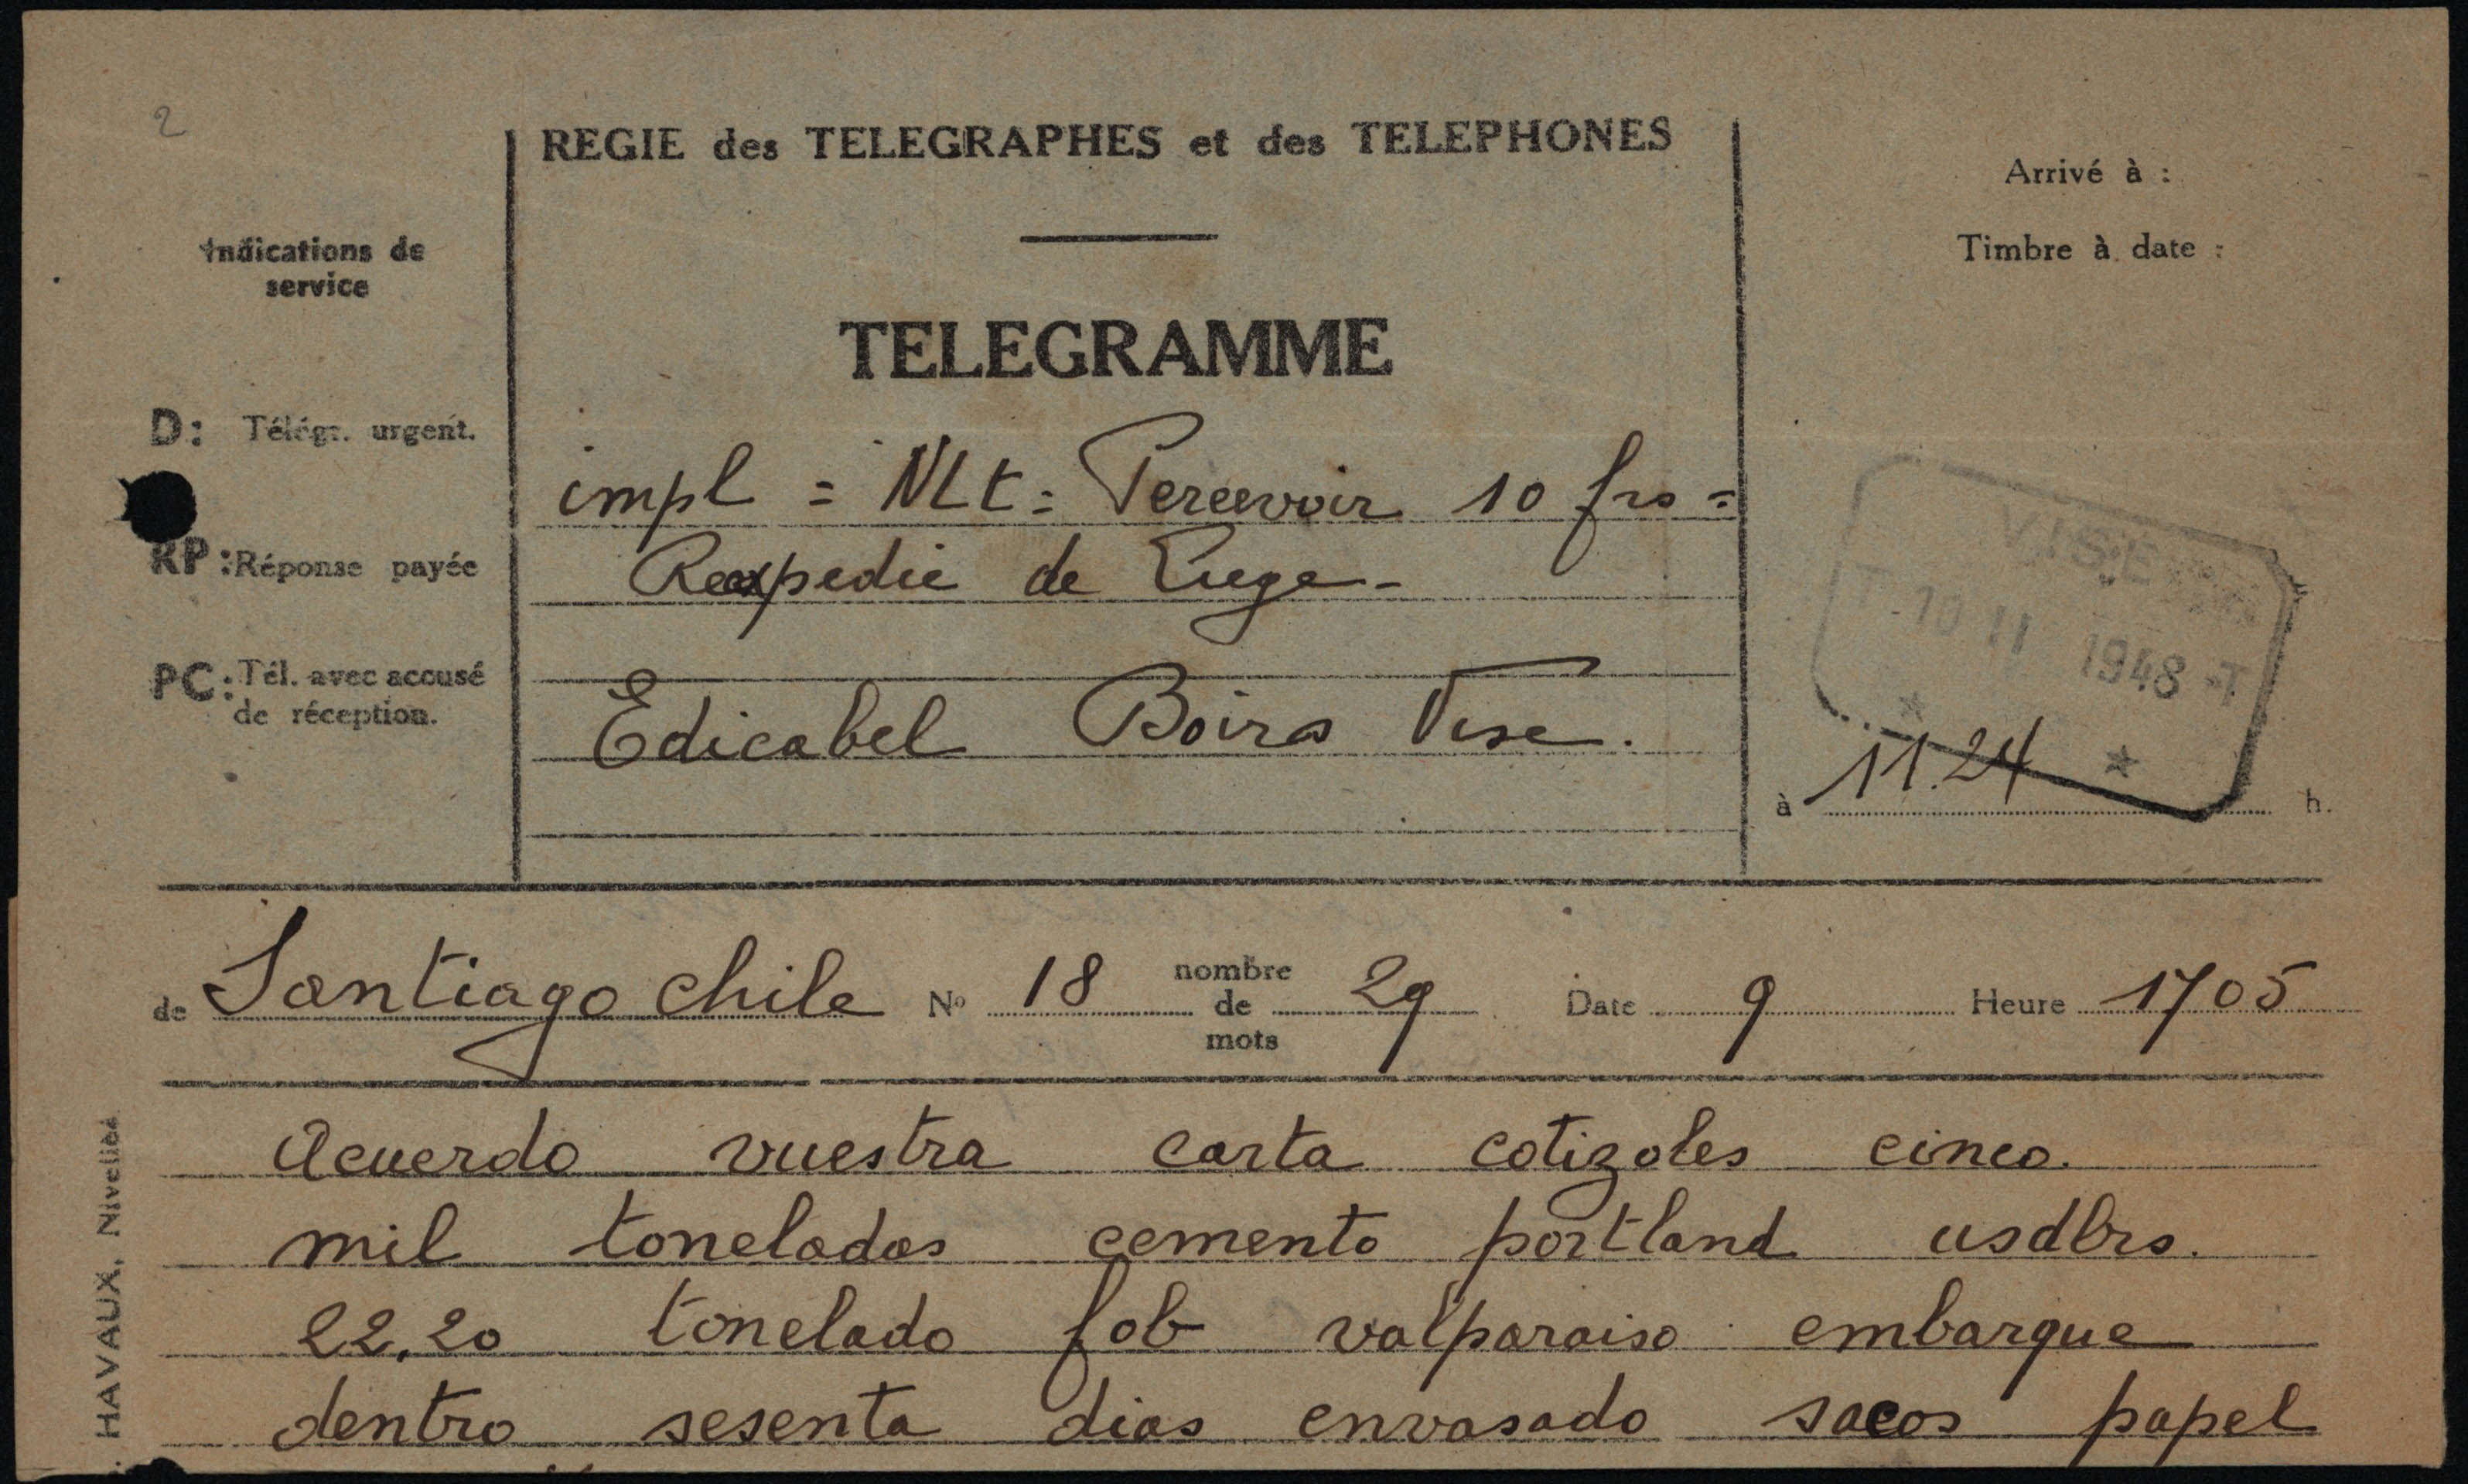 2
REGIE des TELEGRAPHES et des TELEPHONES
Arrivé à :
Timbre à date :
Indications de
service
TELEGRAMME
D: Télégr. urgent.
RP: Réponse payée
PC: Tél. avec accusé
de réception.
impl = NLt = Percevoir 10 frs =
Reexpedie de Liege -
Edicabel Boirs Vise.
VISE
T -10 11 1948 -T
à 11.24 h.
de Santiago chile No 18 nombre de mots 29 Date 9 Heure 1705
Acuerdo vuestra carta cotizoles cinco.
mil toneladas cemento portland usdlrs.
22,20 tonelado fob valparaiso embarque
dentro sesenta dias envasado sacos papel
HAVAUX, Nivelles